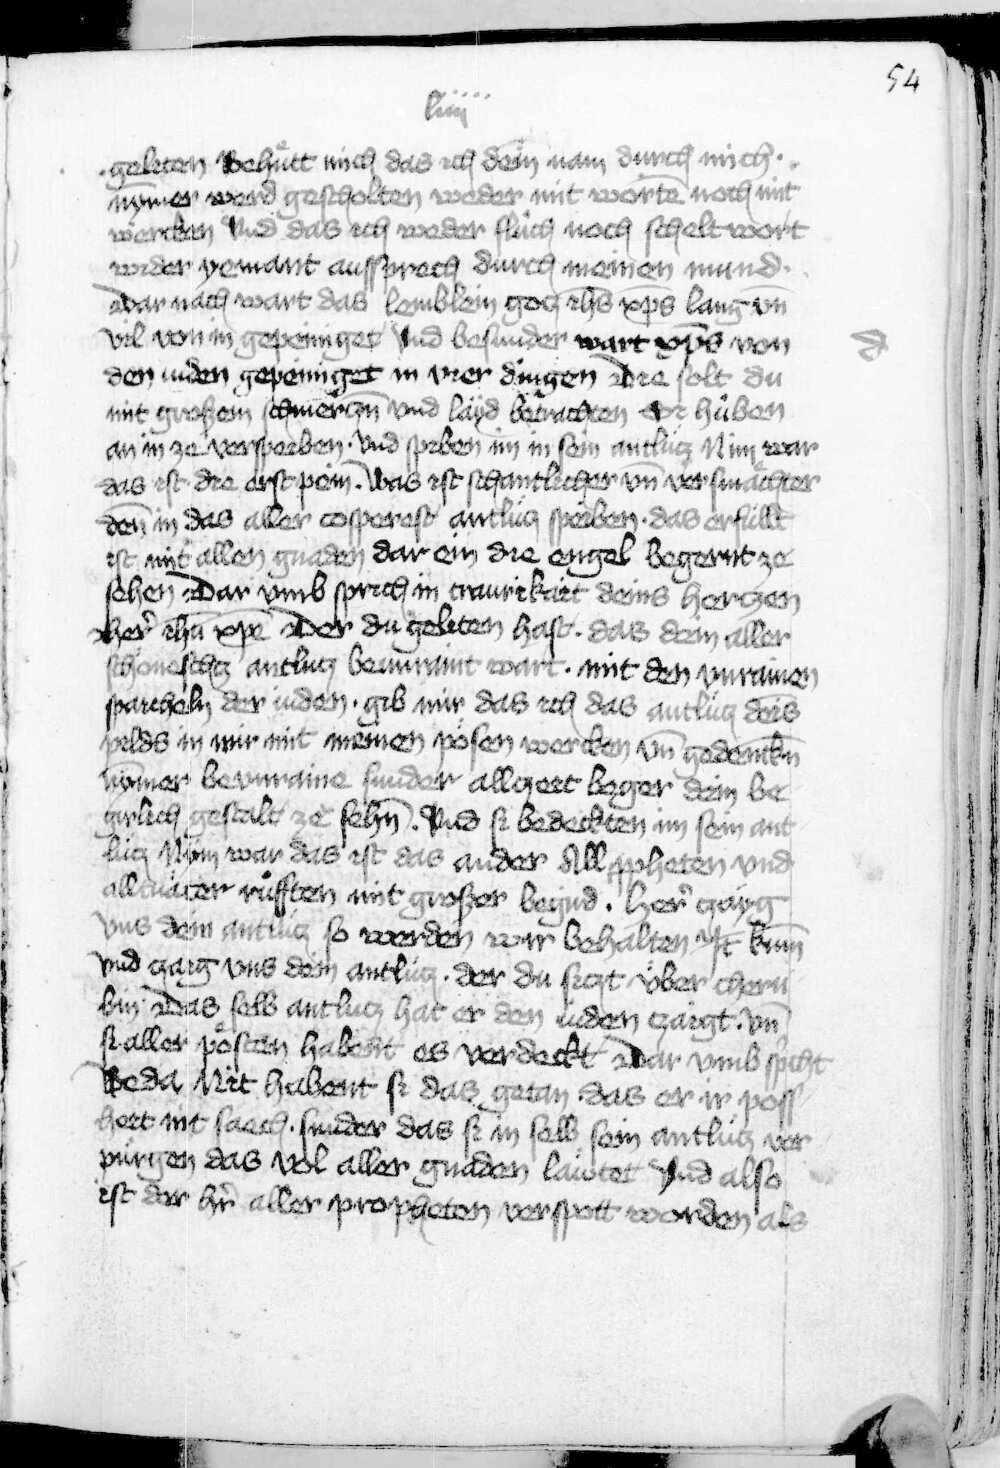 54
liiij
geleten Behuͤtt mich das ich dein nam durch mich
nȳmer werd gescholten weder mit wortē noch mit
wercken Vnd das ich weder fluͤch noch scheltwort
wider yemant aussprech durch meinen mund
Dar nach wart das lemblein gotz ihs xp̄s lang vn̄
vil von in gepeiniget Vnd besunder wart xp̄s von
den iuden gepeiniget in vier dingen Die solt du
mit großem schmerczn̄ vnd layd betrachten Sie huͤben
an in ze verspeiben · vnd speiben im in sein antlutz Nim war
das ist die erst pein. Was ist schantlicher vn̄ versmaͤchter
den̄ in das aller cosperest antlutz speiben · das erfullt
ist mit allen gnaden dar ein die engel begernt ze
sehen · Dar vmb sprich in traurikait deins hertzen
her̄ ihū xp̄e Der du geleten hast · das dein aller
schoͤnestes antlutz beunraint wart · mit den vnrainen
spaicheln der iuden · gib mir das ich das antlutz deīs
pilds in mir mit meinen poͤsen wercken vn̄ gedenckn̄
nȳmer bevnraine sunder allczeit beger dein be
girlich gestalt ze sehn̄. Vnd si bedeckten im sein ant
lutz Nym war das ist das ander All ppheten vnd
altuaͤter ruͦfften mit großer begird . Her̄ czayg
vns dein antlutz so werden wir behalten It kum̄
vnd czaig vns dein antlutz · der du siczt vͤber cheru
bin Das selb antlutz hat er den iuden czaigt · vn̄
si aller poͤsten habent es verdeckt Dar vmb spͥcht
Beda Nit habent si das getan das er ir poss
heit nit saech · sunder das si in selb sein antlutz ver
purgen das vol aller gnaden laiwtet Vnd also
ist der hr̄ aller propheten verspott worden als